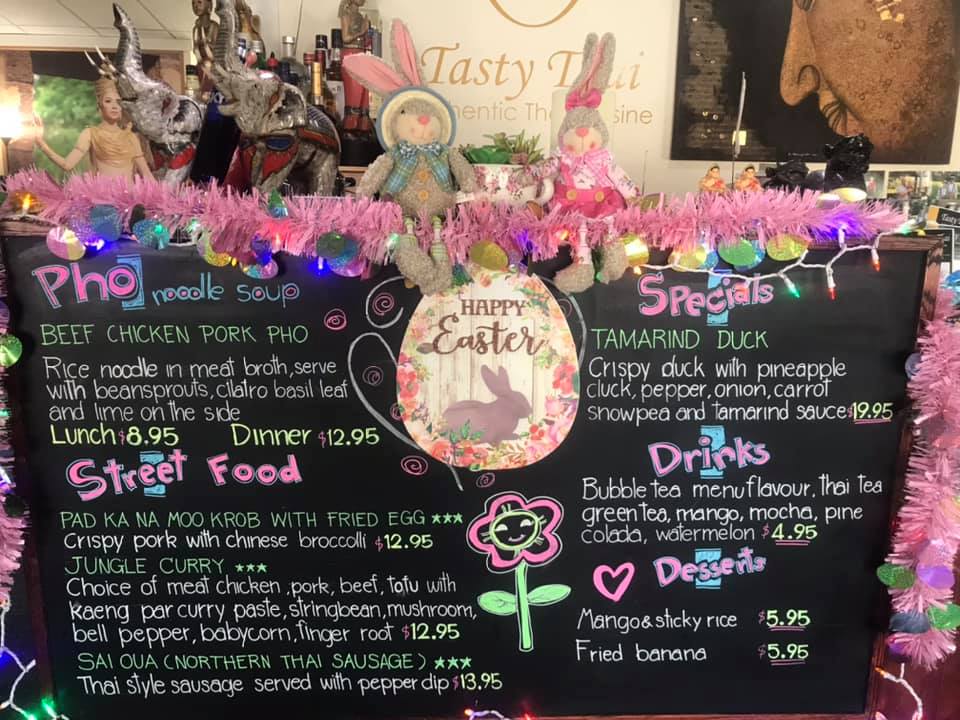 Tasty Thai
Authentic Thai Cuisine
Pho noodle soup
BEEF CHICKEN PORK PHO
Rice noodle in meat broth, serve
with beansprouts, cilatro basil leaf
and lime on the side
Lunch $8.95 Dinner $12.95
Street Food
PAD KA NA MOO KROB WITH FRIED EGG ★★★
Crispy pork with chinese broccolli $12.95
JUNGLE CURRY ★★★
Choice of meat chicken, pork, beef, tofu with
kaeng par curry paste, stringbean, mushroom,
bell pepper, babycorn, finger root $12.95
SAI OUA (NORTHERN THAI SAUSAGE) ★★★
Thai style sausage served with pepper dip $13.95
HAPPY
Easter
Specials
TAMARIND DUCK
Crispy duck with pineapple
cluck, pepper, onion, carrot
snowpea and tamarind sauce $19.95
Drinks
Bubble tea menu flavour, thai tea
green tea, mango, mocha, pine
colada, watermelon $4.95
Desserts
Mango & sticky rice $5.95
Fried banana $5.95